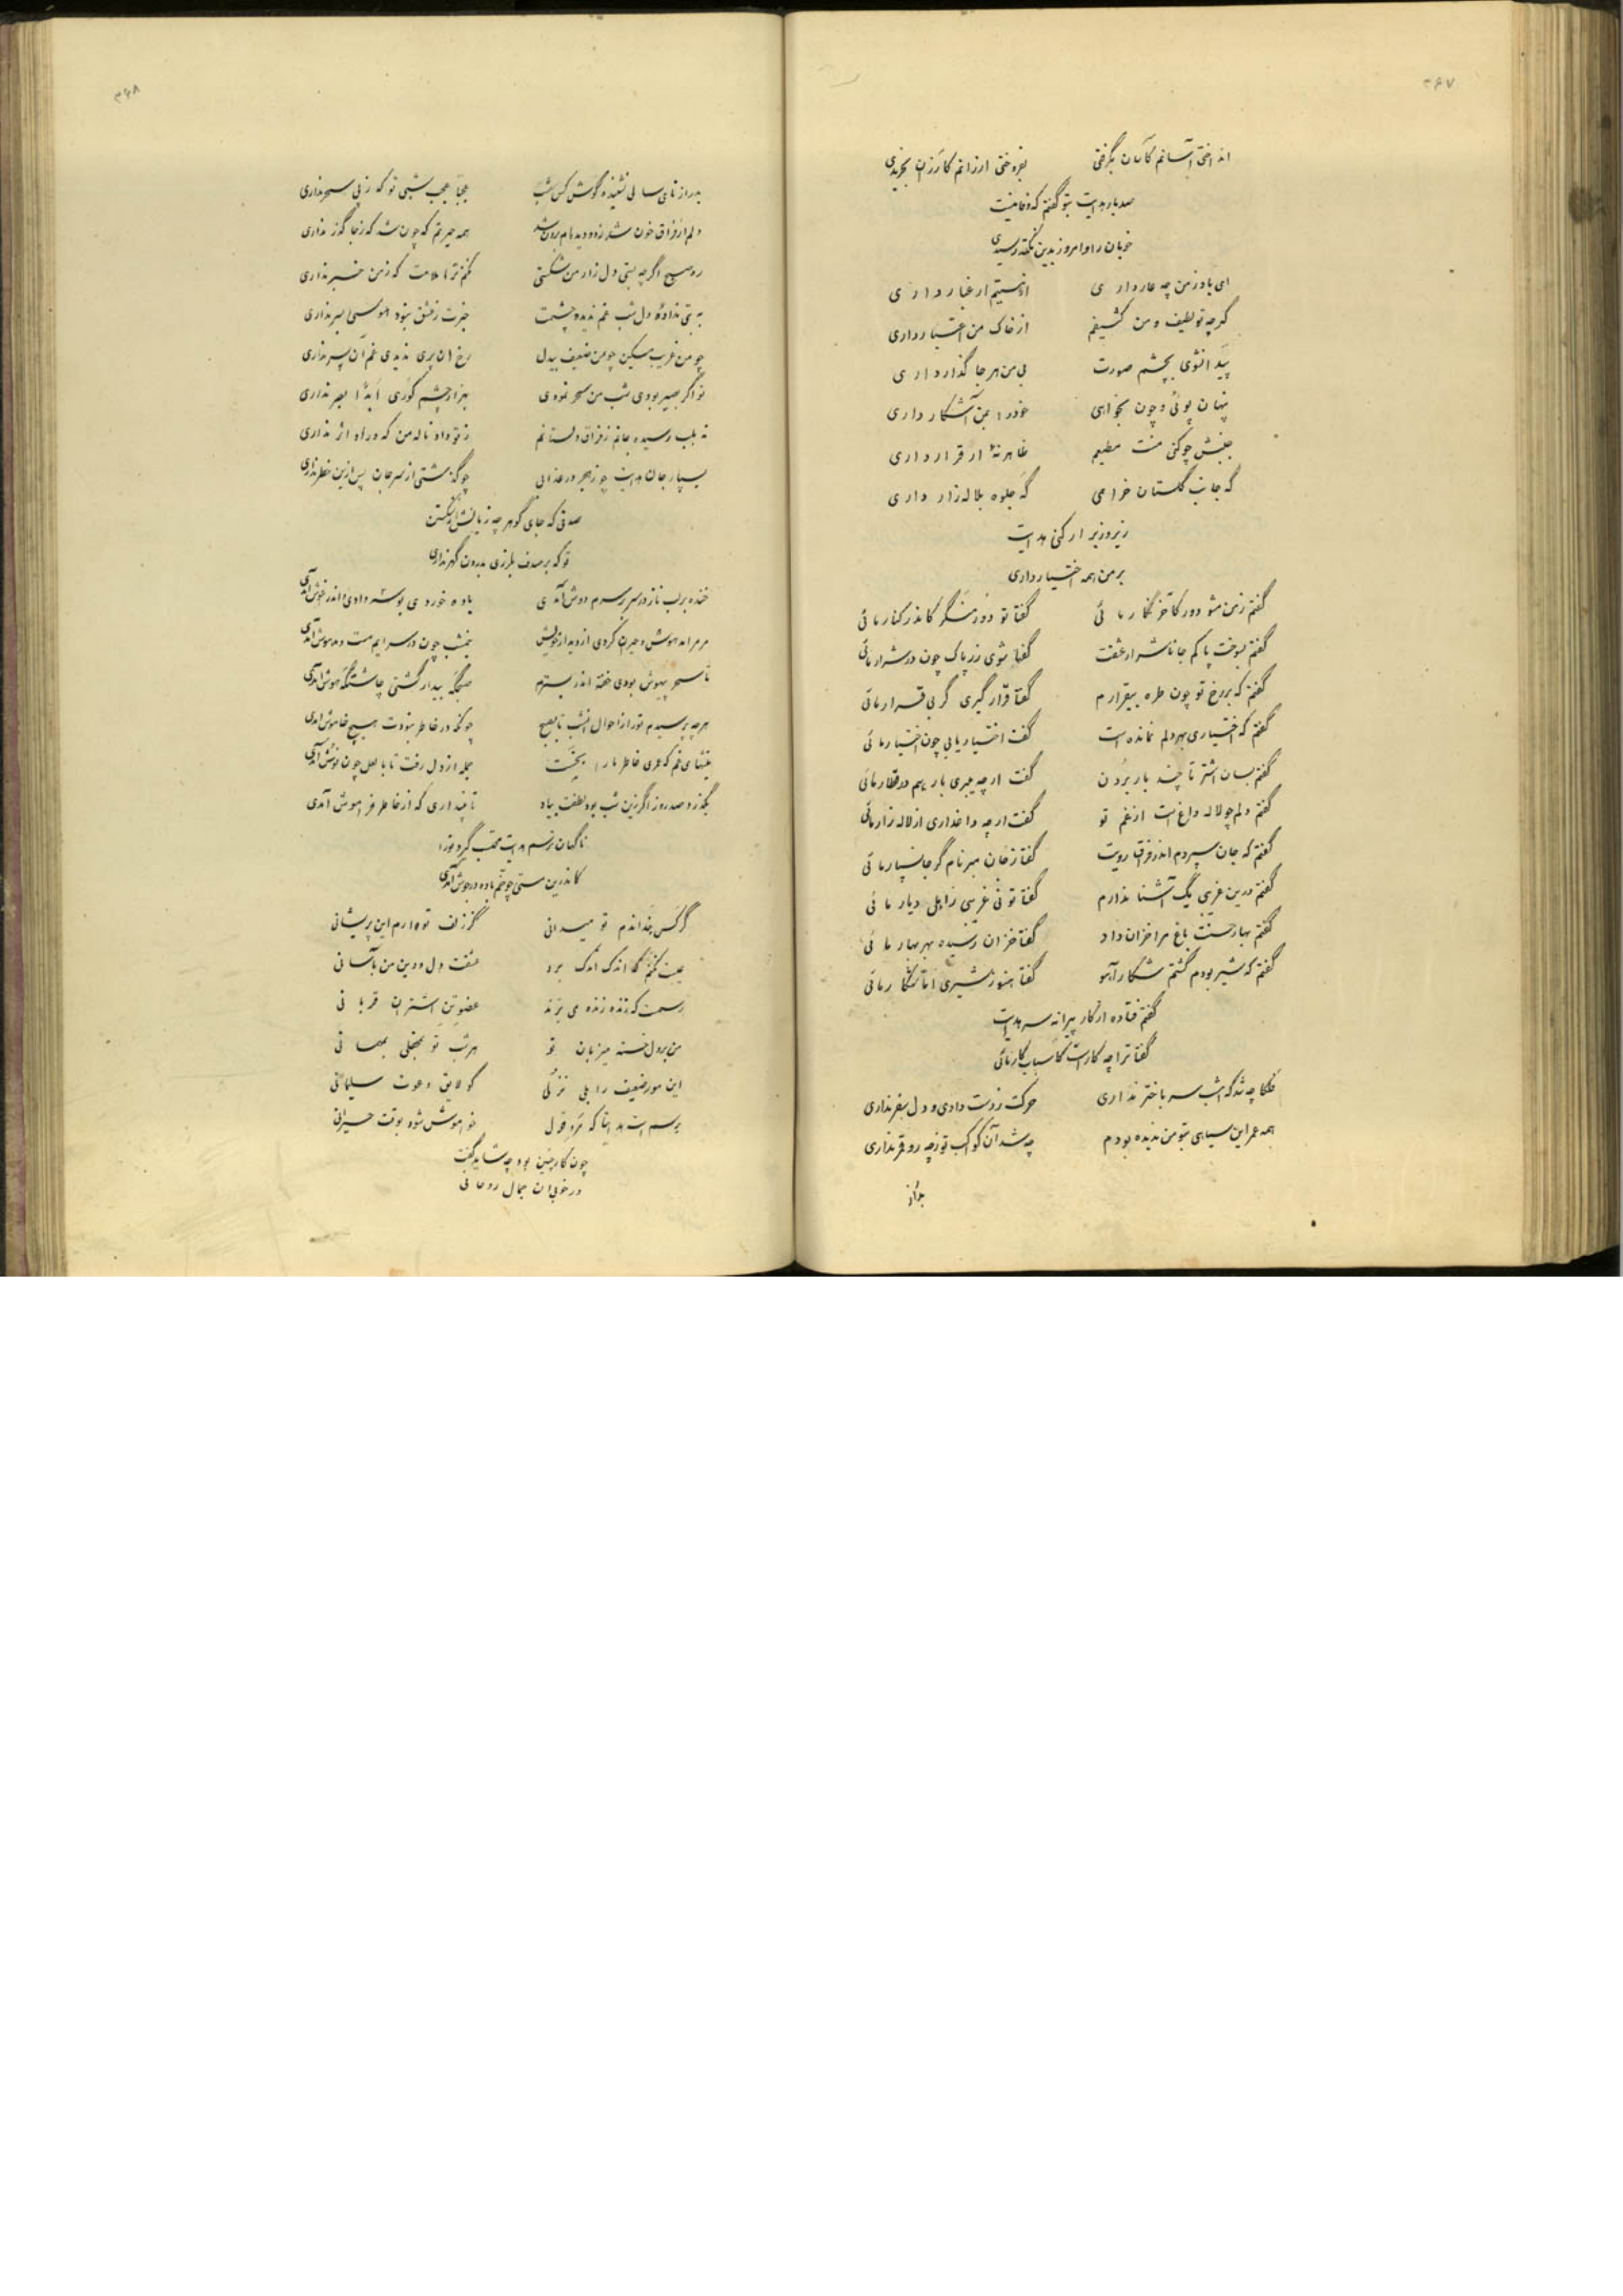 ۳۶۷
انداختی آسانم کآسان بگرفتی بفروختی ارزانم کارزان بخریدی
صد بار هدایت بتو گفتم که وفا نیست
خوبان را و امروز بدین نکته رسیدی
ای باد ز من چه عار داری از نیستیم ار غبار داری
گرچه تو لطیف و من کثیفم از خاک من اعتبار داری
پیدا نشوی بچشم صورت بی من هر جا گذار داری
پنهان پوئی و چون بخواهی خود را بمن آشکار داری
جنبش چو کنی منت مطیعم ظاهر نه ار قرار داری
گه جانب گلستان خرامی گه جلوه بلاله زار داری
زیر و زبر ار کنی هدایت
بر من همه اختیار داری
گفتم ز من مشو دور کآخر نگار مائی گفتا تو دور منگر کاندر کنار مائی
گفتم بسوخت پاکم جانا شرار عشقت گفتا شوی زر پاک چون در شرار مائی
گفتم که بر رخ تو چون طره بیقرارم گفتا قرار گیری گر بی قرار مائی
گفتم که اختیاری بهر دلم نمانده است گفت اختیار یابی چون اختیار مائی
گفتم بسان اشتر تا چند بار بردن گفت ار چه میبری بار هم در قطار مائی
گفتم دلم چو لاله داغ است از غم تو گفت ار چه داغداری از لاله زار مائی
گفتم که جان سپردم اندر فراق رویت گفتا ز جان مبر نام گر جانسپار مائی
گفتم درین غریبی یک آشنا ندارم گفتا تو نی غریبی ز اهل دیار مائی
گفتم بهار حسنت باغ مرا خزان داد گفتا خزان رسیده بهر بهار مائی
گفتم که شیر بودم گشتم شکار آهو گفتا هنوز شیری اما شکار مائی
گفتم فتاده از کار پیرانه سر هدایت
گفتا ترا چه کار است کاسباب کار مائی
فلکا چه شد که امشب سر باختر نداری حرکت ز دست دادی و دل سفر نداری
همه عمر این سیاهی بتو من ندیده بودم چه شد آن کواکب تو ز چه رو قمر نداری
بدراز
۳۶۸
بدرازنای سالی نشنیده گوش کس شب عجبا عجب شبی تو که ز پی سحر نداری
دلم از فراق خون شد ز دو دیده ام برون شد همه حیرتم که چون شد که ز جا گذر نداری
ره صبح اگر چه بستی دل زار من شکستی نکنم ترا ملامت که ز من خبر نداری
به بتی نداده دل شب غم ندیده چشمت خبرت ز عشق نبود هوسی بسر نداری
چو من غریب مسکین چو من ضعیف بیدل رخ آن پری ندیدی غم آن پسر نداری
تو اگر بصیر بودی شب من سحر نمودی بهزار چشم کوری ابدا بصر نداری
نه بلب رسیده جانم ز فراق دلستانم ز تو داد ناله من که در او اثر نداری
بسپار جان هدایت چو ز هجر در عذابی چو گذشتی از سر جان پس ازین خطر نداری
صدفی که جای گوهر چه زیانش از شکستن
تو که بر صدف بلرزی بدرون گهر نداری
خنده بر لب ناز در سر بر سرم دوش آمدی باده خوردی بوسه دادی و اندر آغوش آمدی
مر مرا مدهوش و حیران کردی از دیدار خویش نیمشب چون در سرایم مست و مدهوش آمدی
تا سحر بیهوش بودی خفته اندر بسترم صبحگه بیدار گشتی چاشتگه هوش آمدی
هر چه پرسیدم تو را از احوال امشب تا بصبح چونکه در خاطر نبودت هیچ خاموش آمدی
نیشهای غم که عمری خاطر ما را بخست جمله از دل رفت تا با لعل چون نوش آمدی
بگذرد صد روز اگر زین شب بود لطفت بیاد تا نپنداری که از خاطر فراموش آمدی
ناگهان ترسم هدایت محتسب گیرد تو را
کاندرین مستی چو خم باده در جوش آمدی
گر کس بنداندم تو میدانی کز زلف تو دارم این پریشانی
عیبت نکنم که اندک اندک برد عشقت دل و دین من بآسانی
رسمست که زنده زنده می برند عضو تن اشتران قربانی
من بر دل خسته میزبان تو هر شب تو بمحفلی بمهمانی
این مور ضعیف را بلی نزلی کو لایق دعوت سلیمانی
بر رسم است هدایتا که مرد قول خاموش شود بوقت حیرانی
چون کار چنین بود چه شاید گفت
در خوبی آن جمال روحانی